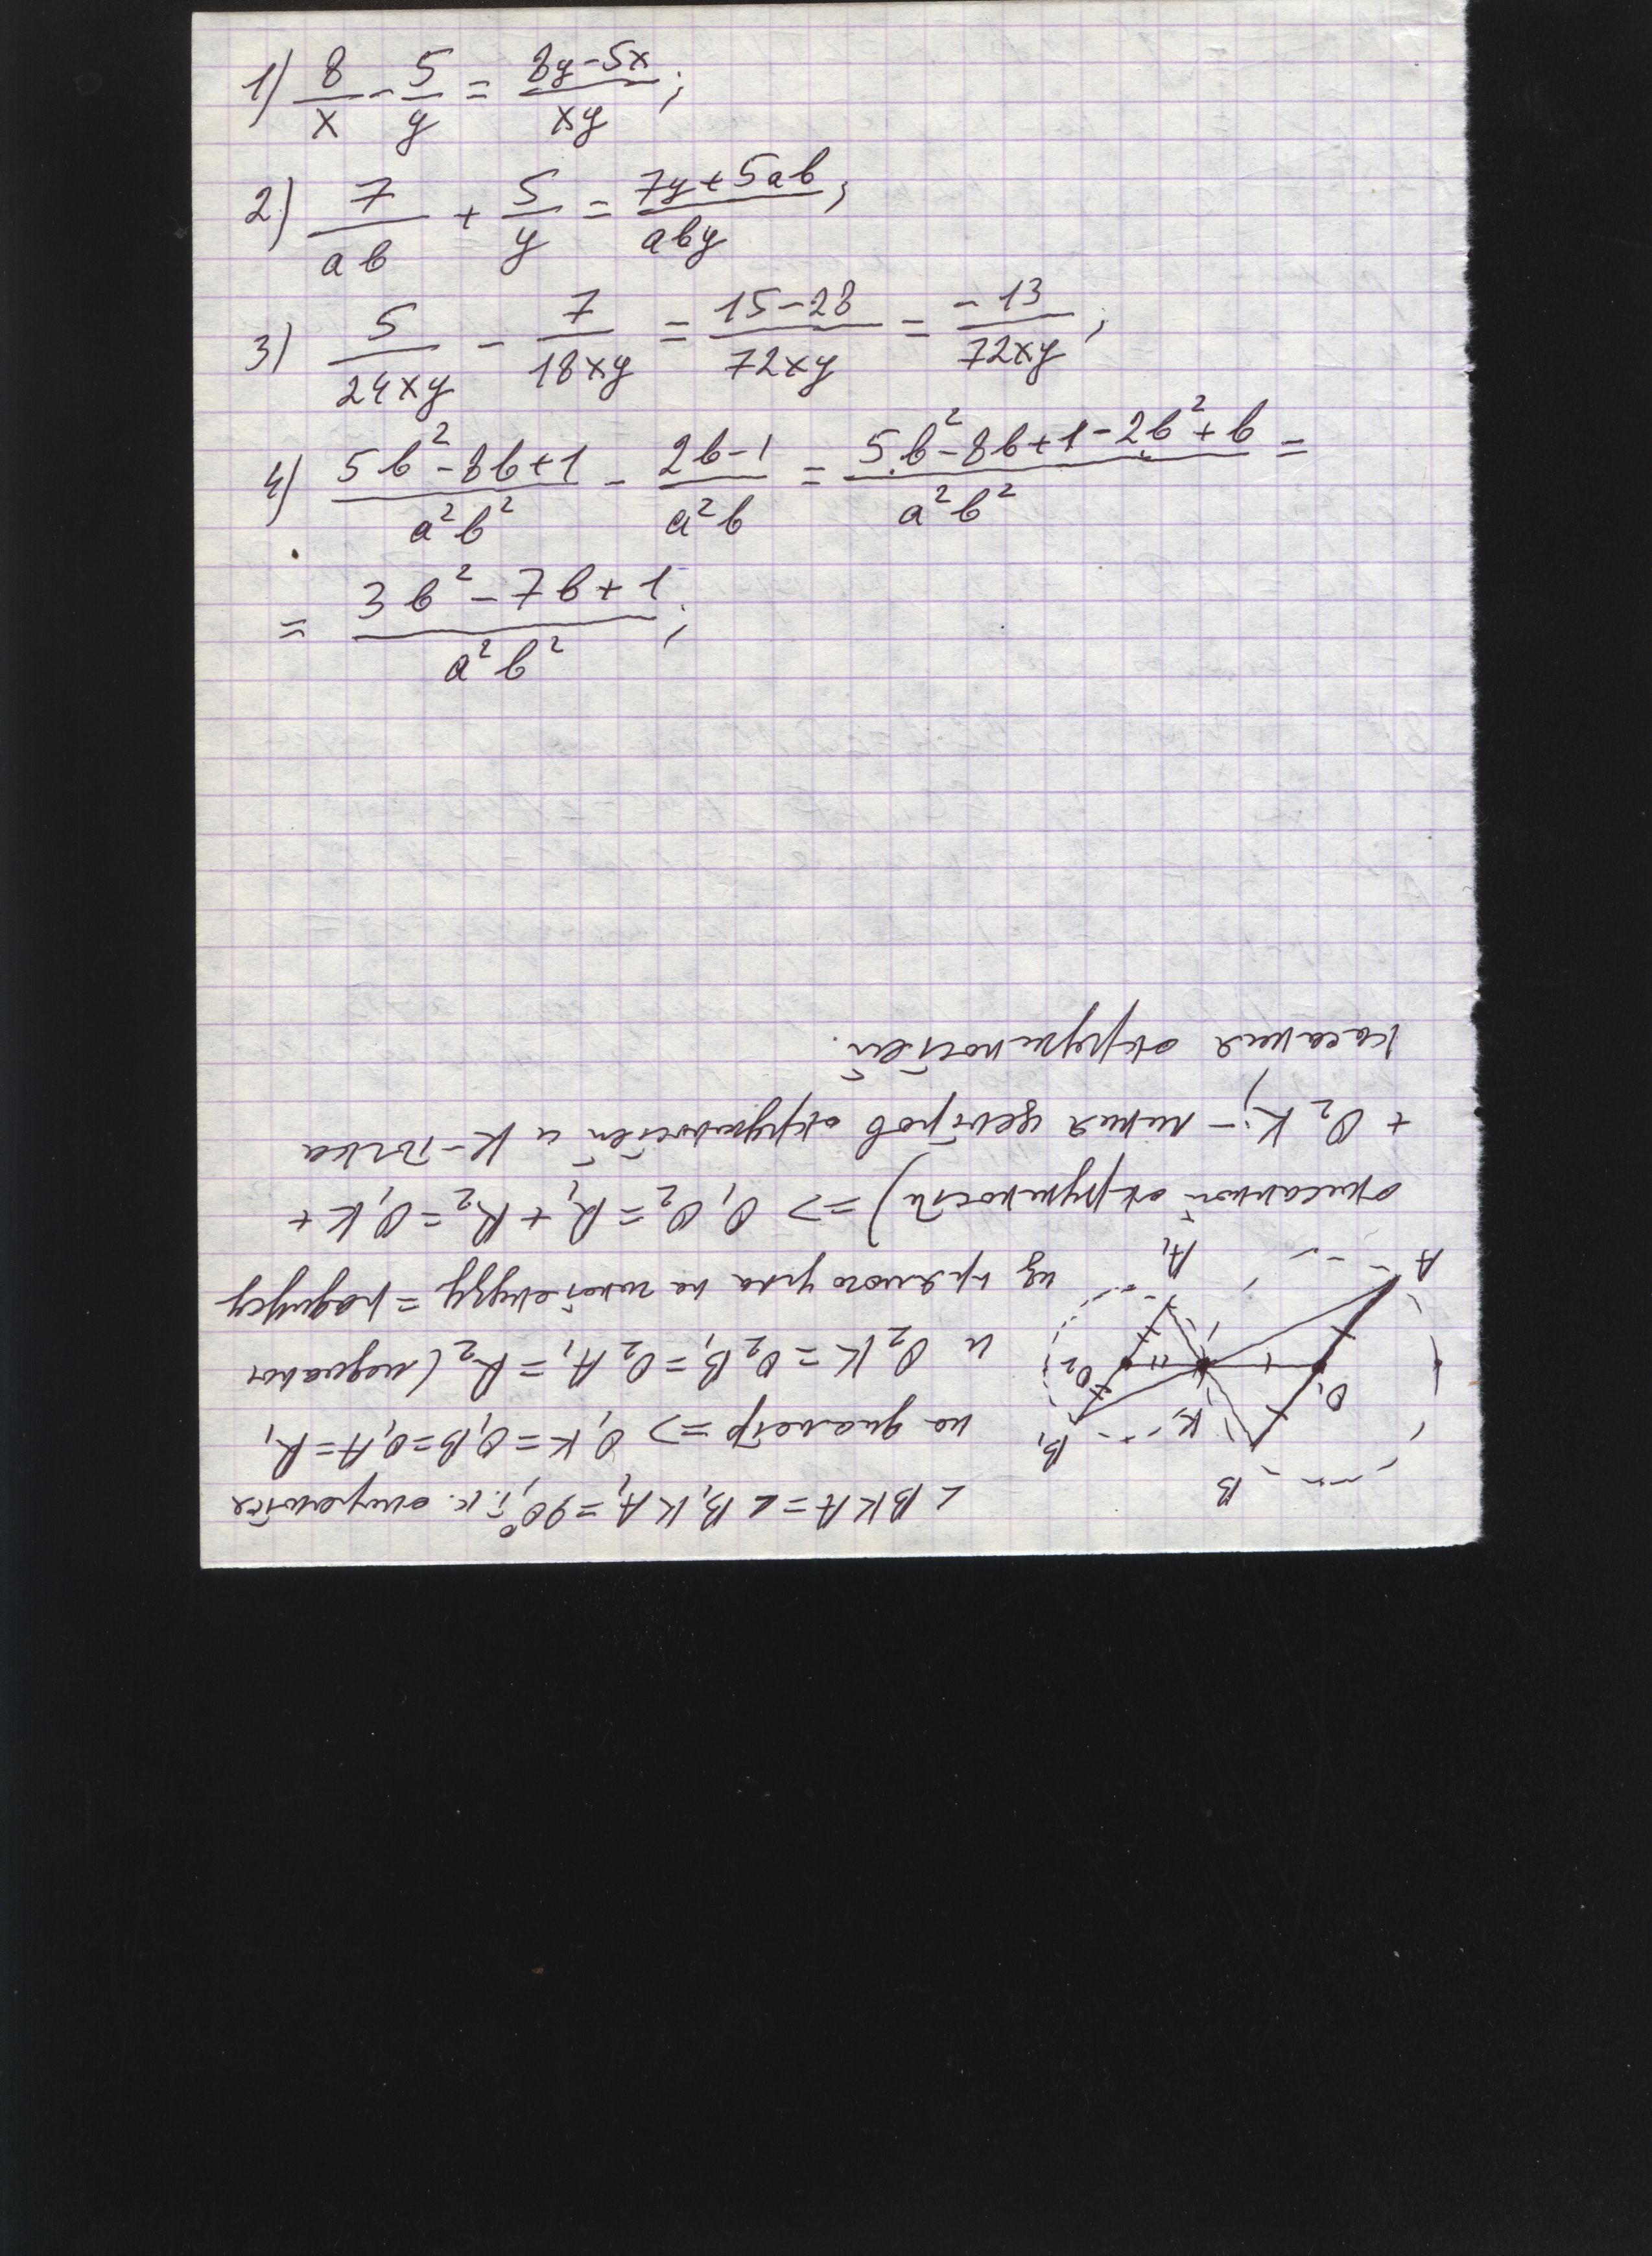 1) 8/x - 5/y = (8y-5x)/xy;
2) 7/ab + 5/y = (7y+5ab)/aby;
3) 5/24xy - 7/18xy = (15-28)/72xy = -13/72xy;
4) (5b²-8b+1)/a²b² - (2b-1)/a²b = (5b²-8b+1-2b²+b)/a²b² =
= (3b²-7b+1)/a²b²;
∠BKA=∠B₁KA₁=90°, т.к. опираются
на диаметр => O₁K=O₁B=O₁A=R₁
и O₂K=O₂B₁=O₂A₁=R₂ (медиана
из прямого угла на гипотенузу = радиусу
описанной окружности) => O₁O₂=R₁+R₂=O₁K+
+O₂K; - линия центров окружностей и K-точка
касания окружностей.
B
B₁
K
O₁
O₂
A
A₁